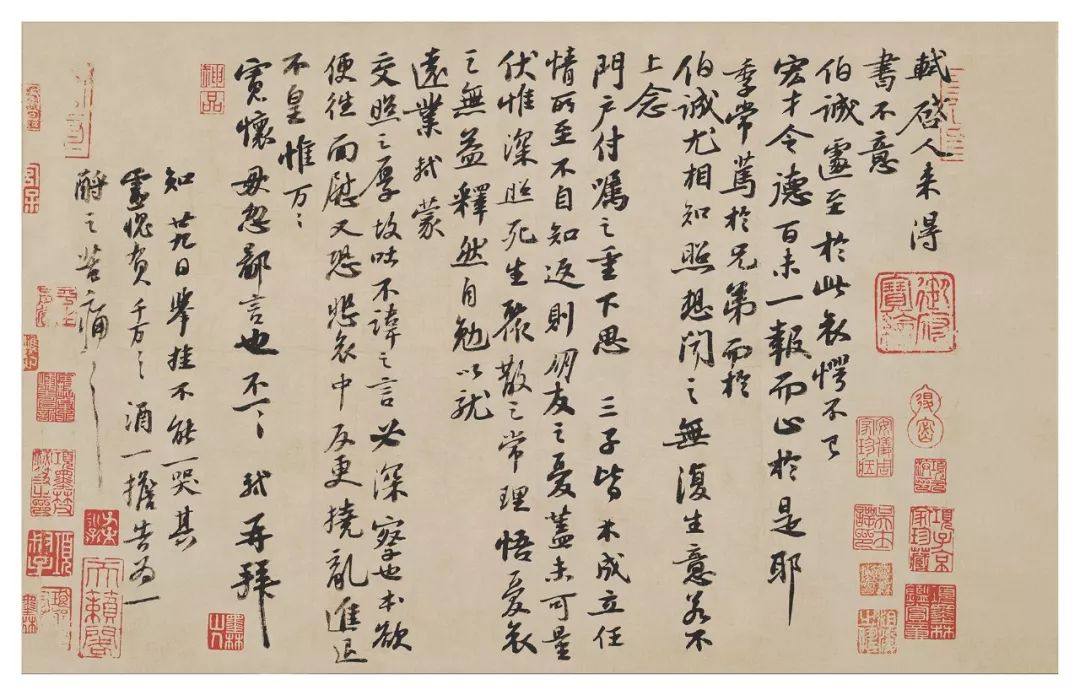 軾啓人来得
書不意
伯誠遽至於此哀愕不已
宏才令德百未一報而止於是耶
季常篤於兄弟而於
伯誠尤相知照想聞之無復生意若不
上念
門户付囑之重下思三子皆未成立任
情所至不自知返則朋友之憂蓋未可量
伏惟深照死生聚散之常理悟憂哀
之無益釋然自勉以就
遠業軾蒙
交照之厚故吐不諱之言必深察也本欲
便往面慰又恐悲哀中反更撓亂進退
不皇惟万〻
寬懷毋忽鄙言也不一〻軾再拜
知廿九日舉挂不能一哭其
靈愧負千万〻酒一擔告為一
酹之苦痛〻
神品
御府寶繪
安儀周家珍藏
項子京家珍藏
項墨林鑑賞章
墨林山人
天籟閣